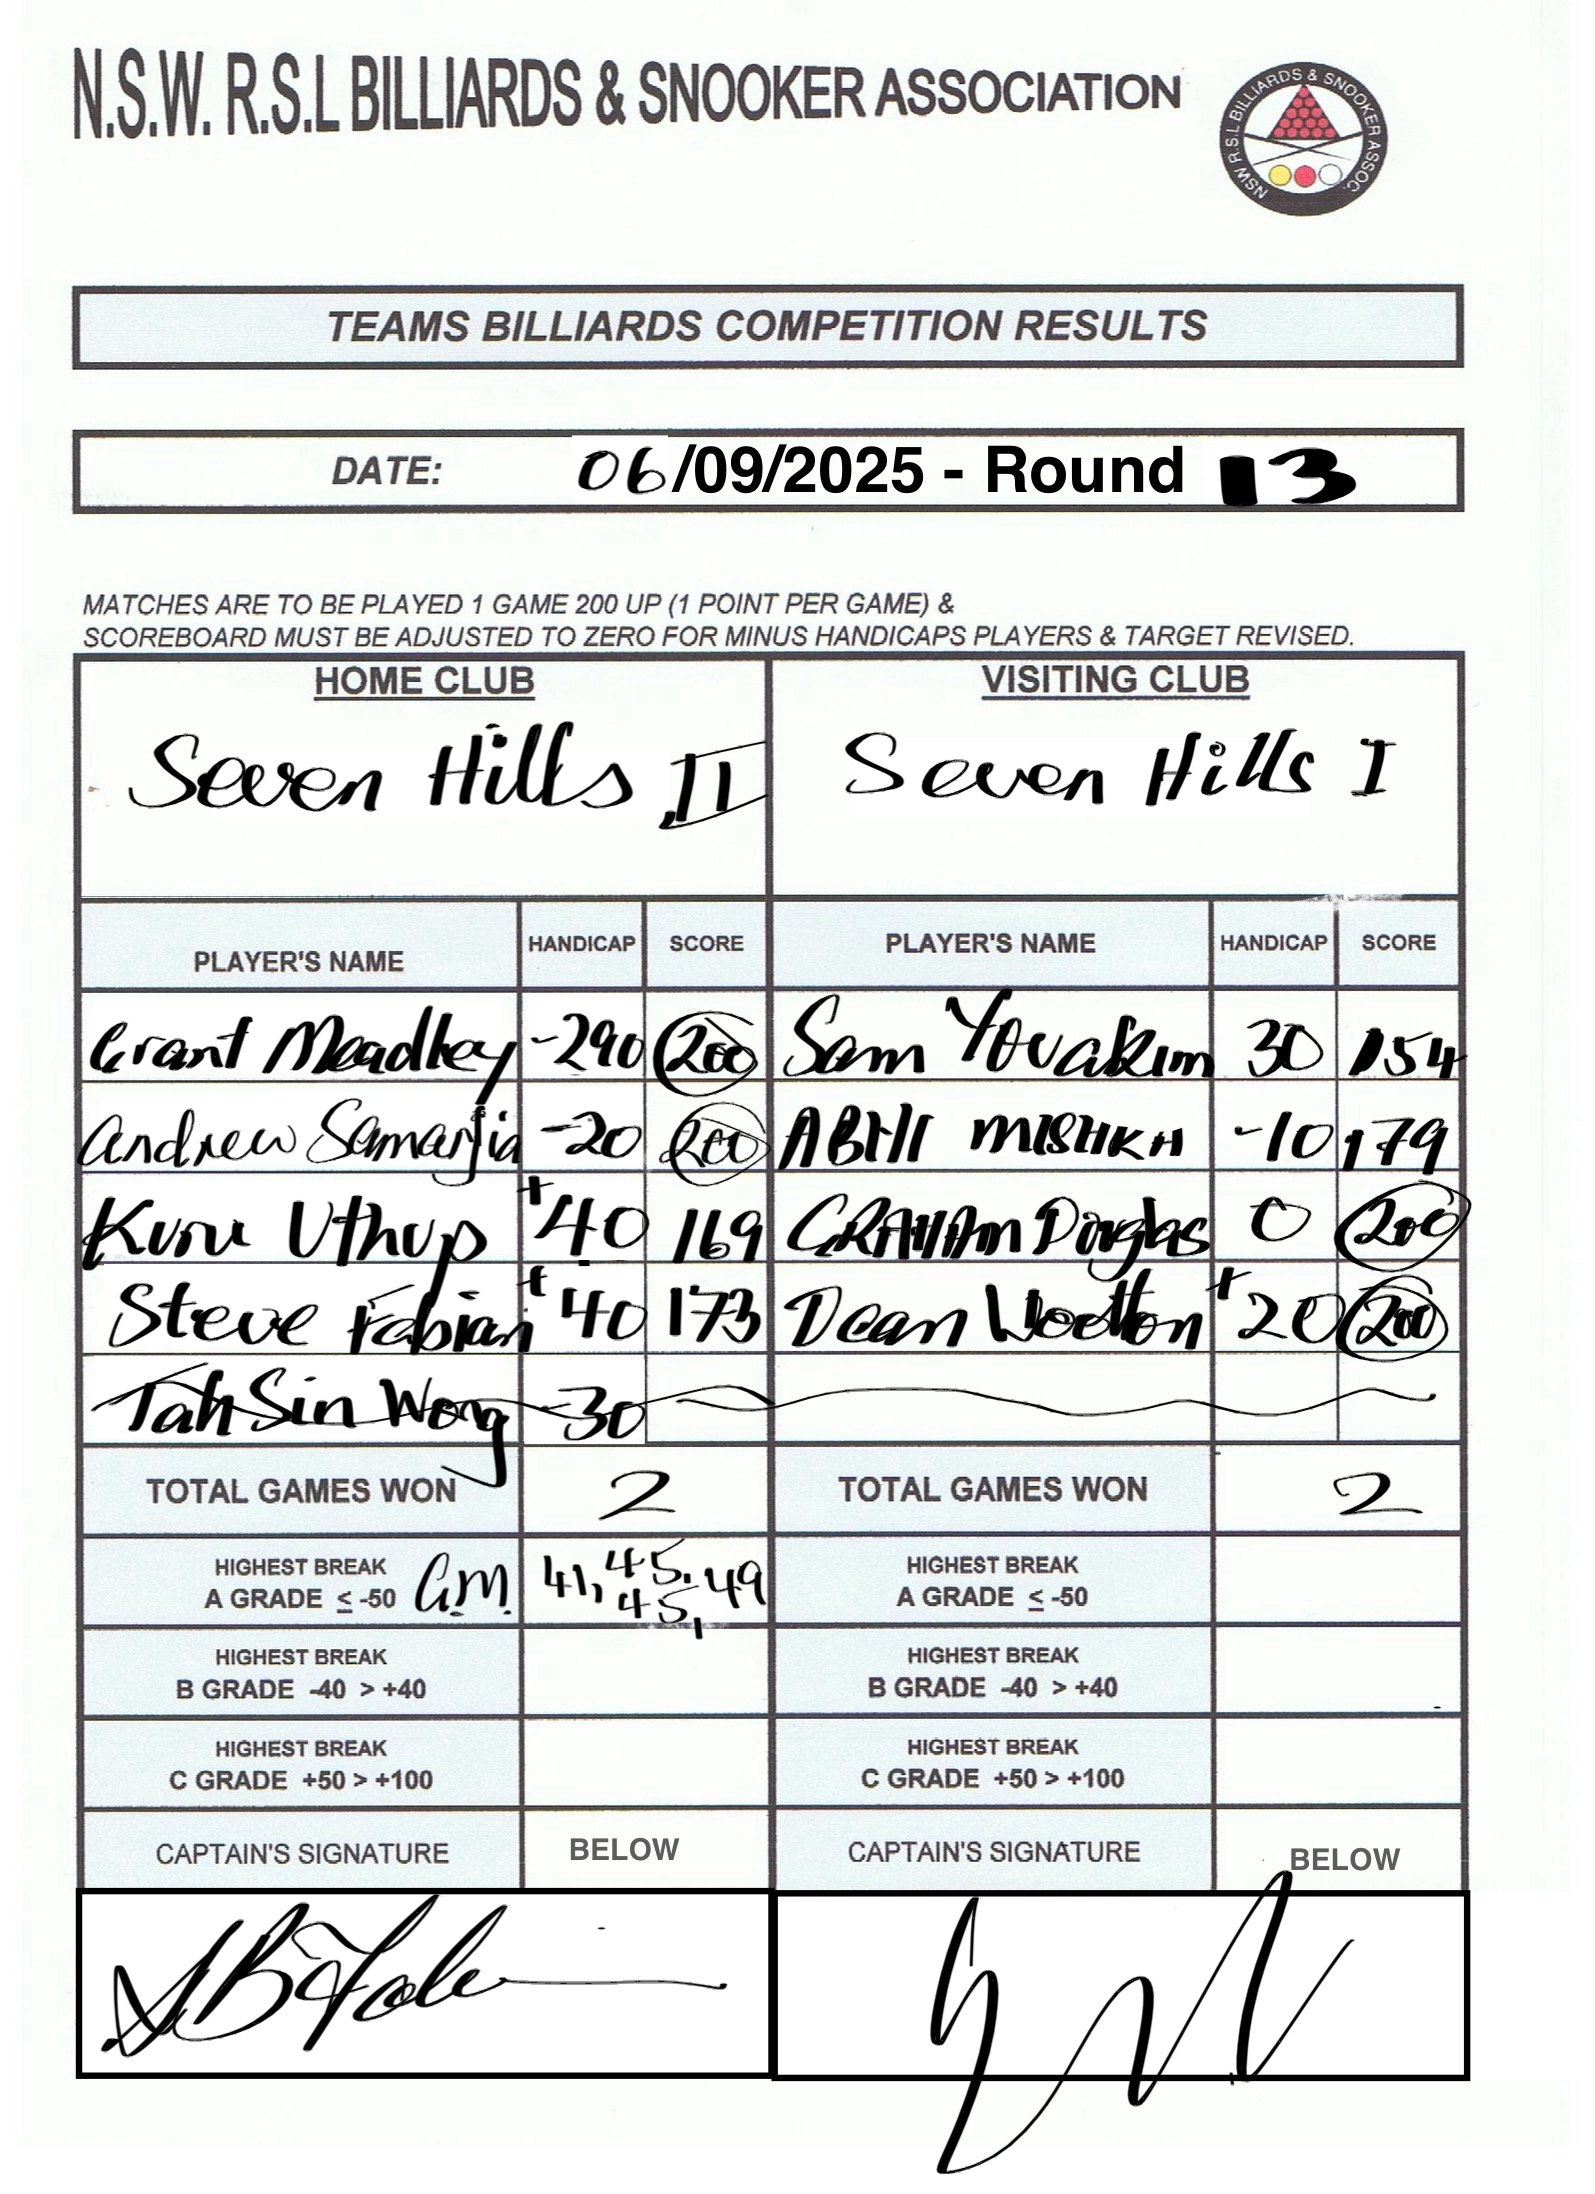 N.S.W. R.S.L BILLIARDS & SNOOKER ASSOCIATION
NSW R.S.L BILLIARDS & SNOOKER ASSOC.
TEAMS BILLIARDS COMPETITION RESULTS
DATE: 06/09/2025 - Round 13
MATCHES ARE TO BE PLAYED 1 GAME 200 UP (1 POINT PER GAME) &
SCOREBOARD MUST BE ADJUSTED TO ZERO FOR MINUS HANDICAPS PLAYERS & TARGET REVISED.
HOME CLUB VISITING CLUB
Seven Hills II Seven Hills I
PLAYER'S NAME HANDICAP SCORE PLAYER'S NAME HANDICAP SCORE
Grant -290 200 Sam Youakim 30 154
Andrew Samarjia -20 200 ABHI MISHRA -10 179
Kuru Uthup +40 169 GRAHAM Douglas 0 200
Steve Fabian +40 173 Dean Wootton +20 200
Tah Sin Wong -30
TOTAL GAMES WON 2 TOTAL GAMES WON 2
HIGHEST BREAK A GRADE ≤ -50 G.M. 41, 45, 45, 49 HIGHEST BREAK A GRADE ≤ -50
HIGHEST BREAK B GRADE -40 > +40 HIGHEST BREAK B GRADE -40 > +40
HIGHEST BREAK C GRADE +50 > +100 HIGHEST BREAK C GRADE +50 > +100
CAPTAIN'S SIGNATURE BELOW CAPTAIN'S SIGNATURE BELOW